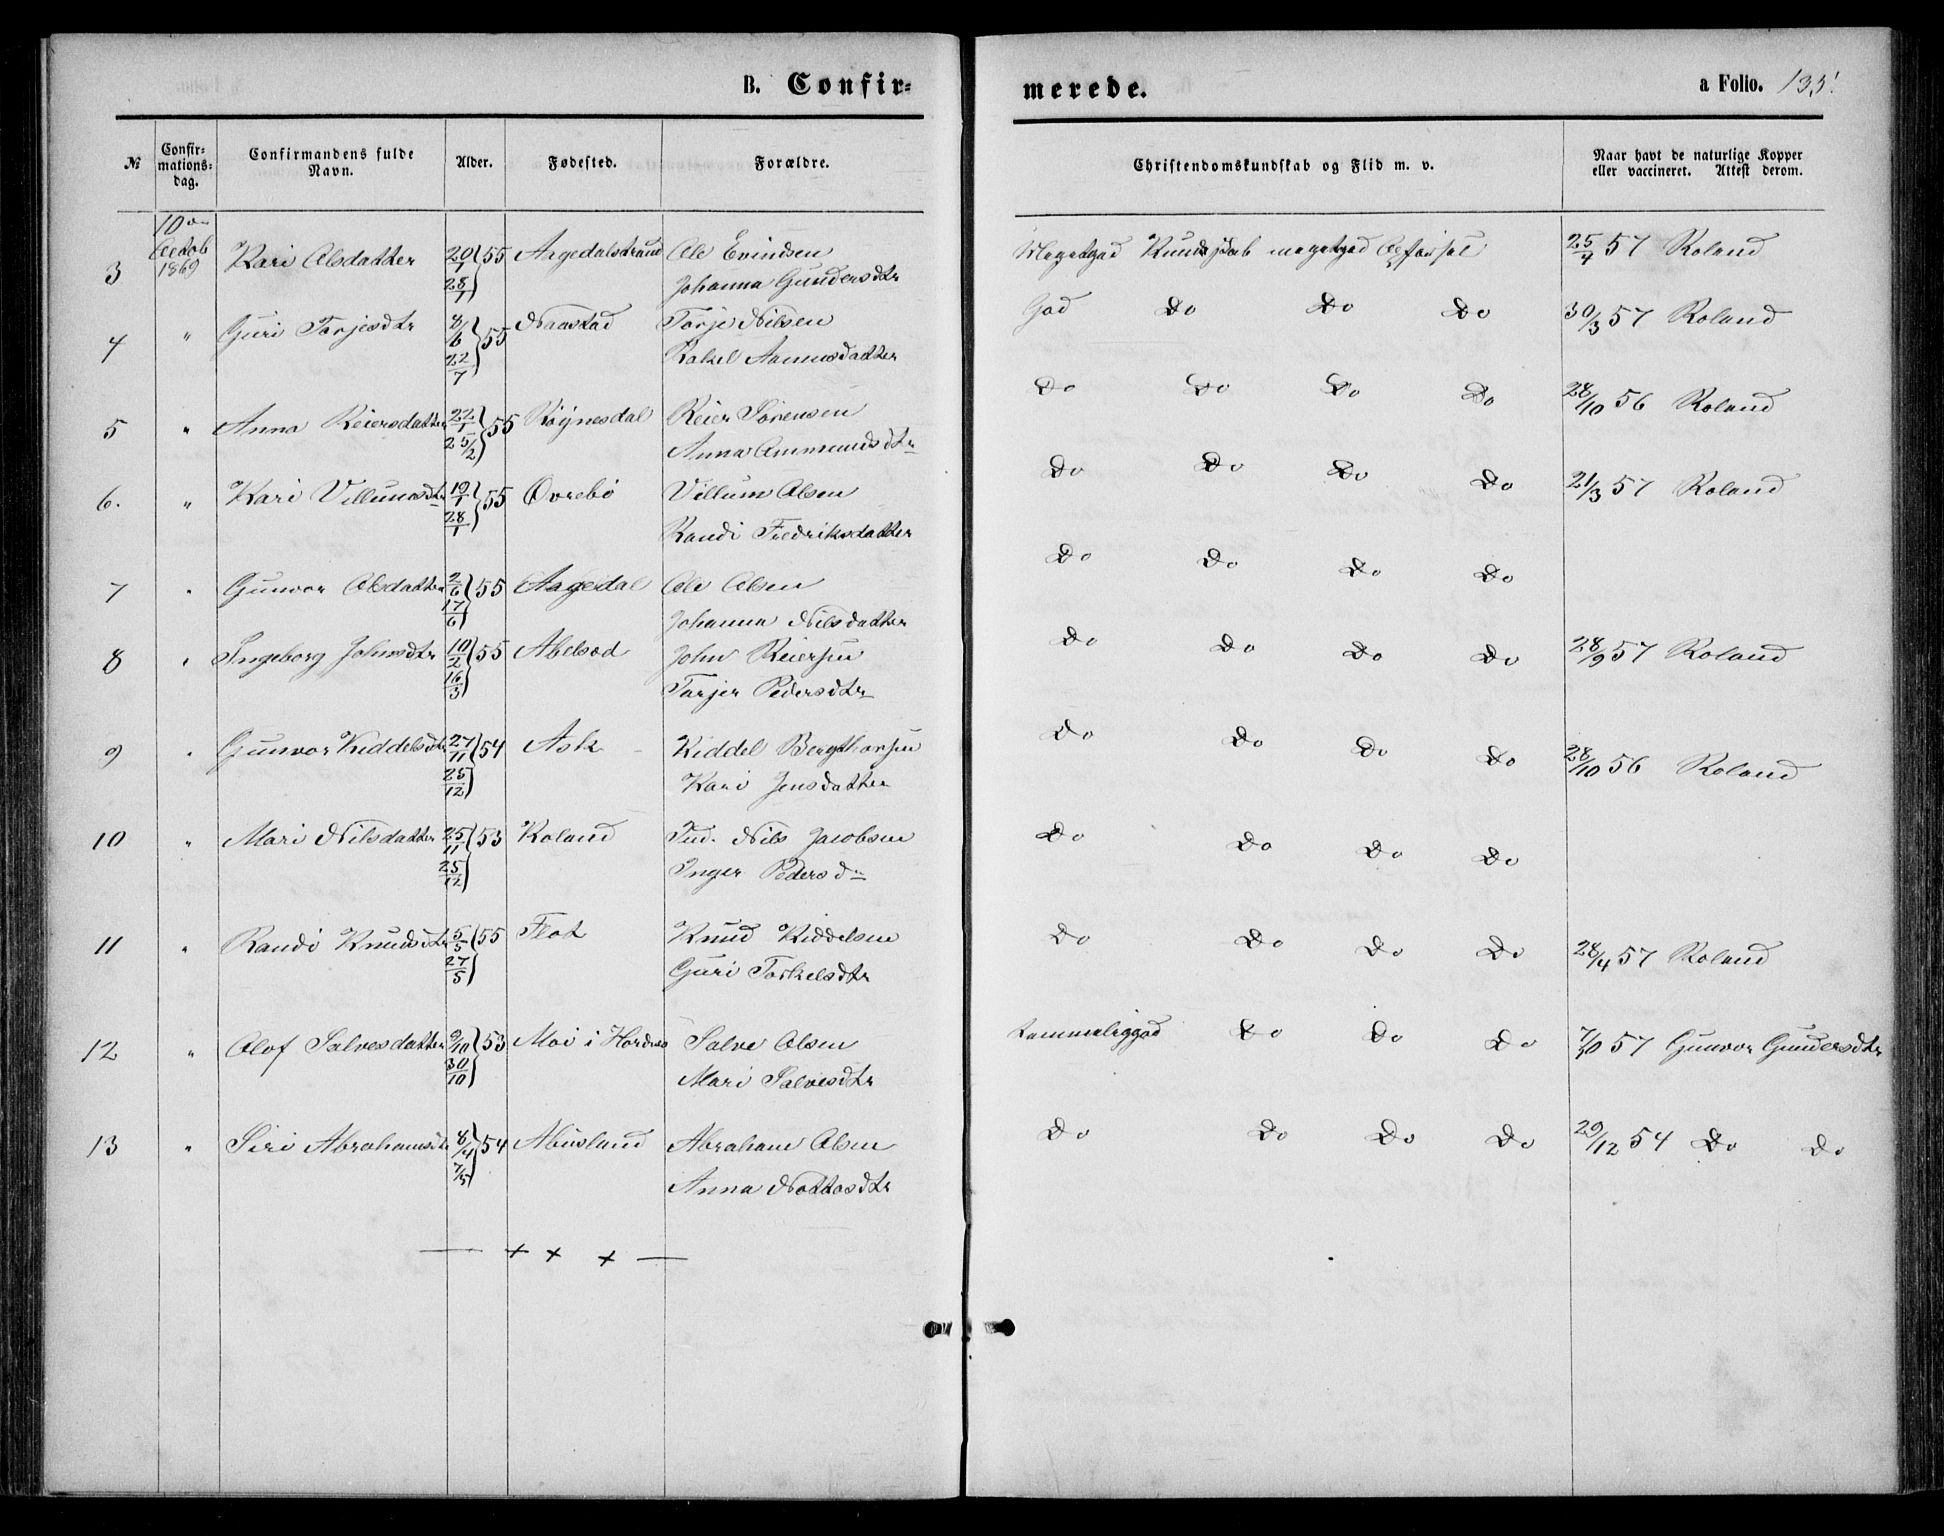 B. Confir=
merede.
a Folio. 135.
№ Confir-mations=dag. Confirmandens fulde Navn. Alder. Fødested. Forældre. Christendomskundskab og Flid m. v. Naar havt de naturlige Kopper eller vaccineret. Attest derom.
10de
Octob
1869
3 Kari Olsdatter 20/1 55 Aagedalstrand Ole Evindsen Megetgod Kundskab megetgod Opførsel 25/4 57 Roland
28/1 Johanna Gundersdtr
4 " Guri Torjesdtr 8/6 55 Naastad Torje Nilsen God Do Do Do 30/3 57 Roland
22/7 Rakel Aanunsdatter
5 " Anna Reiersdatter 22/1 55 Röynesdal Reier Sörensen Do Do Do Do 28/10 56 Roland
25/2 Anna Ommundsdtr
6. " Kari Villumsdtr 19/1 55 Övrebö Villum Olsen Do Do Do Do 21/3 57 Roland
28/1 Randi Fredriksdatter
7 " Gunvor Olsdatter 2/6 55 Aagedal Ole Olsen Do Do Do Do
17/6 Johanna Nilsdatter
8 " Ingeborg Johnsdtr 10/2 55 Abelsød John Reiersen Do Do Do Do 28/9 57 Roland
16/3 Torjer Pedersdtr
9 " Gunvor Kiddelsdtr 27/11 54 Ask Kiddel Bergthorsen Do Do Do Do 28/10 56 Roland
25/12 Kari Jensdatter
10 " Mari Nilsdatter 25/11 53 Roland Ind. Nils Jacobsen Do Do Do Do
25/12 Inger Pedersdr
11 " Randi Knudsdtr 5/5 55 Flot Knud Kiddelsen Do Do Do Do 28/4 57 Roland
27/5 Guri Torkelsdtr
12 " Olof Salvesdatter 9/10 53 Moi i Hordnes Salve Olsen Temmeliggod Do Do Do 7/10 57 Gunvor Gundersdtr
30/10 Mari Salvesdtr
13 " Siri Abrahamsdtr 8/4 54 Abusland Abraham Olsen Do Do Do Do 29/12 54 Do Do
7/5 Anna Nottosdtr